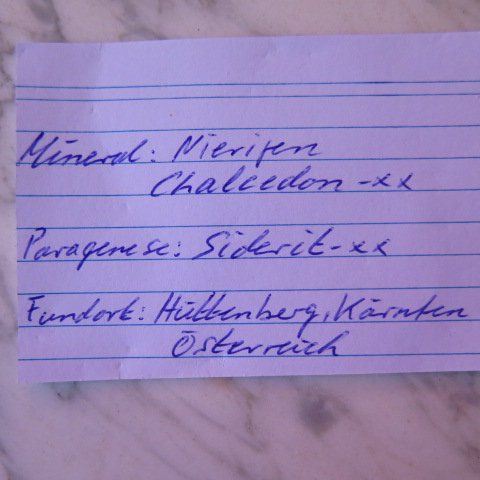 Mineral: Nierigen
Chalcedon-xx
Paragenese: Siderit-xx
Fundort: Hüttenberg, Kärnten
Österreich